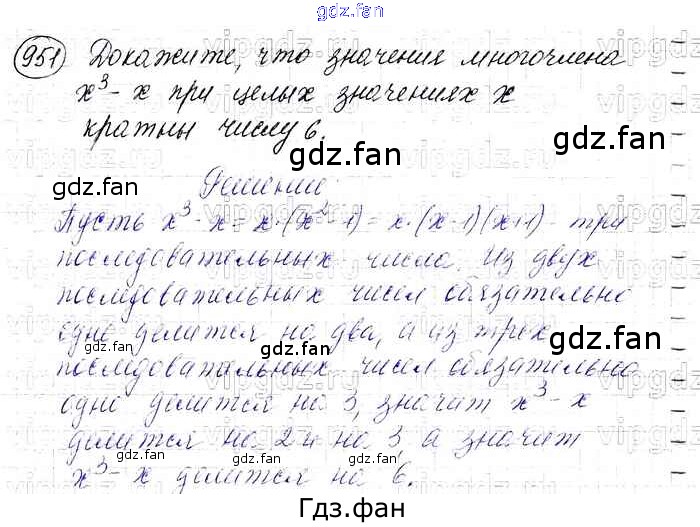 gdz.fan
951 Докажите, что значения многочлена
x³- x при целых значениях x
кратны числу 6.
gdz.fan gdz.fan
Решение:
Пусть x³- x = x·(x²-1) = x·(x-1)(x+1) - три
последовательных числа. Из двух
последовательных чисел обязательно
одно делится на два, а из трех
gdz.fan gdz.fan
последовательных чисел обязательно
одно делится на 3, значит x³- x
делится на 2 и на 3, а значит
x³- x делится на 6.
gdz.fan gdz.fan
Гдз.фан